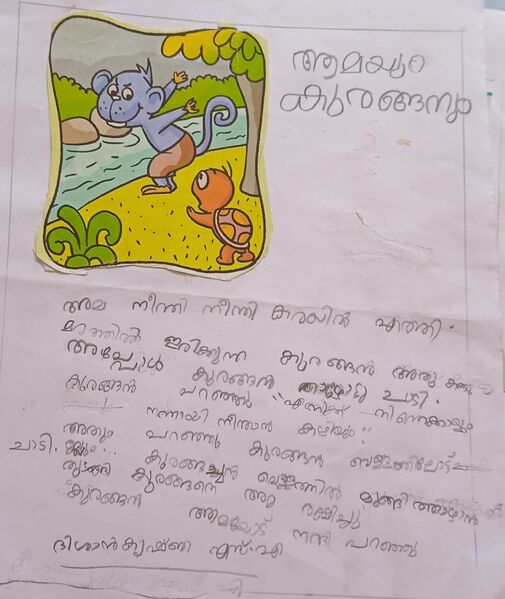 ആമയും
കുരങ്ങനും
അമ നീന്തി നീന്തി കരയിൽ എത്തി.
മരത്തിൽ ഇരിക്കുന്ന കുരങ്ങൻ അതു കണ്ടു
അപ്പോൾ കുരങ്ങൻ താഴോട്ടു ചാടി.
കുരങ്ങൻ പറഞ്ഞു "എനിക്ക് നിന്നെക്കാളും
നന്നായി നീന്താൻ കഴിയും"
അതും പറഞ്ഞു കുരങ്ങൻ വെള്ളത്തിലോട്ട്
ചാടി. ബ്ലും... കുരങ്ങച്ചൻ വെള്ളത്തിൽ മുങ്ങിത്താഴാൻ
തുടങ്ങി കുരങ്ങനെ ആമ രക്ഷിച്ചു
കുരങ്ങൻ ആമയോട് നന്ദി പറഞ്ഞു
ദിശാൻകൃഷ്ണ എസ്.എ